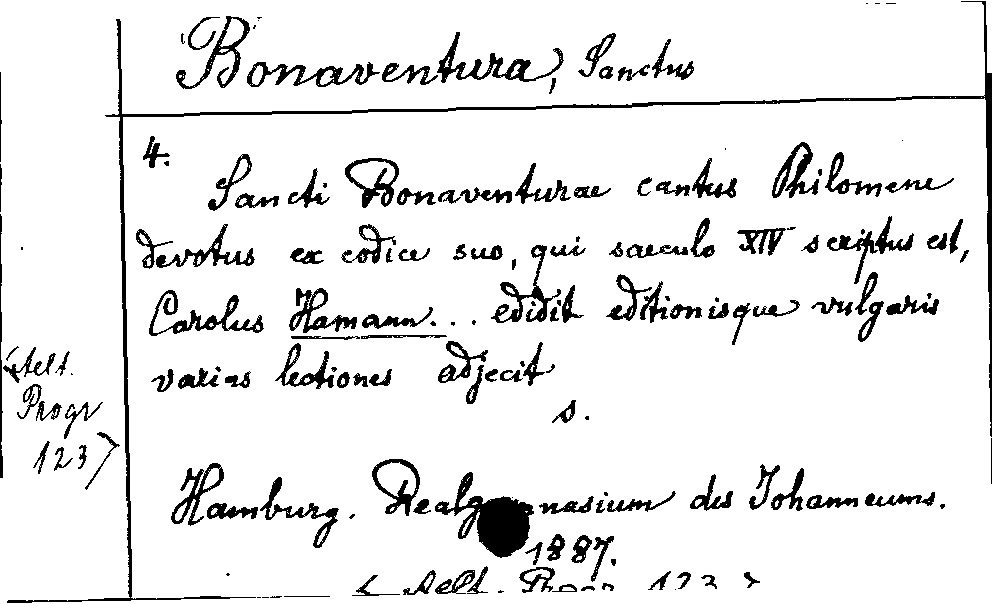 Bonaventura, Sanctus
4.
Sancti Bonaventurae cantus Philomene
devotus ex codice suo, qui saeculo XIV scriptus est,
Carolus Hamann... edidit editionisque vulgaris
varias lectiones adjecit
s.
Progr
123>
Hamburg. Realgymnasium des Johanneums.
1887.
Progr 123>